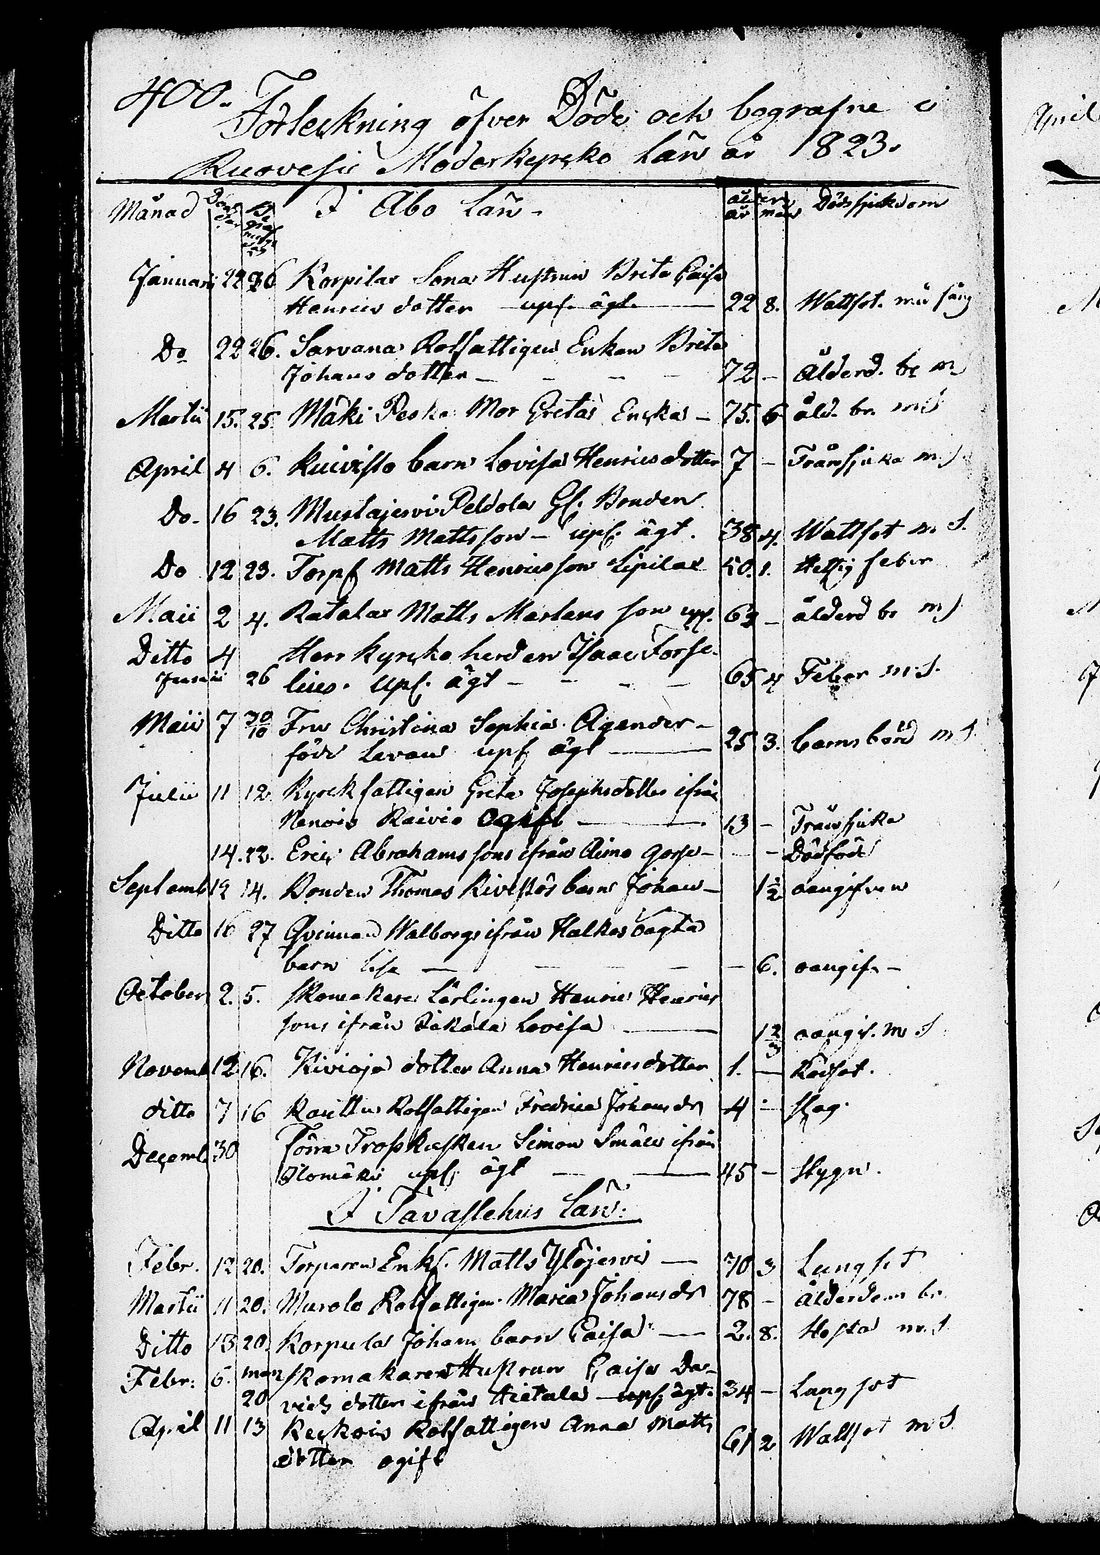 400.
Förteckning öfver Döde och begrafne i
Ruovesi Moderkyrko Län år 1823.
Månad Döds dar Be graf nings dag I Åbo Län. ålder år mån Dödssjukdom
Januari 22 26 Korpilax Sona Hustrun Brita Caisa
Henrics dotter upf. ägt. 22 8. Wattsot. m
Do 22 26. Sarvana Rotfattigen Enkan Brita
Johans dotter 72 - Ålderd. br m
Martii 15. 25 Mäki Mor Greta Enka - 75. 6 åld. br. m.S
April 4 6. Kuivisto barn Lovisa Henricsdotter 7 - Trånsjuka m.S
Do. 16 23. Mustajervi Peldola Gl. Bonden
Matts Mattsson - upf. ägt. 38 4. Wattsot m S.
Do 12 23. Torp Matts Henricsson Lipilax 50. 1. Hettig feber
Maii 2 4. Ratalax Matts Martens son upf. 63 - ålderd br m S
Ditto 4 Herr Kyrkoherden Isaac Forse-
Junii 26 lius. upf. ägt - 65 4 Feber m S.
Maii 7 30/10 Fru Christina Sophia Agander
född Lavan upf ägt 25 3. barnsbörd m S
Julii 11 12 Kyrckfattigen Greta Josephsdotter ifrån
Raivio Ogift 13 - Trånsjuka
14. 22. Eric Abrahams sons ifrån Aimo - - Dödfödt
Septemb 12 14. Bonden Thomas Kivistös barn Johan - 1/2 oangifven
Ditto 16 27 Qvinnan Walborgs ifrån Halkos oägta
barn Lisa - - 6. oangif. -
October 2. 5. Skomakare Lärlingen Henric Henrics
sons ifrån Lovisa 1 2/3 oangif. m S
Novemb 12 16. Kivioja dotter Anna Henricsdotter 1. - Rödsot.
ditto 7 16 Rotfattigen Fredrica Johans dr 4 - slag.
Decemb 30 Förra Trosskusken Simon Småll ifrån
Ylomäki upf. ägt 45 - Stygn.
I Tavastehus Län.
Febr. 12 20. Torparen Enk. Matts Ylöjervi 70 3 Lungsot
Martii 11 20. Murolo Rotfattigen Maria Johans dr 78 - Ålderdoms br.
Ditto 13 20. Korpula Johans barn Caisa 2. 8. Hosta m.S
Febr: 6. Skomakaren Hustrun Caisa Da-
20 vids dotter ifrån Hietala upf ägt. 34 - Lungsot
April 11 13 Rotfattigen Anna Matts
dotter ogift 61 2 Wattsot m S.